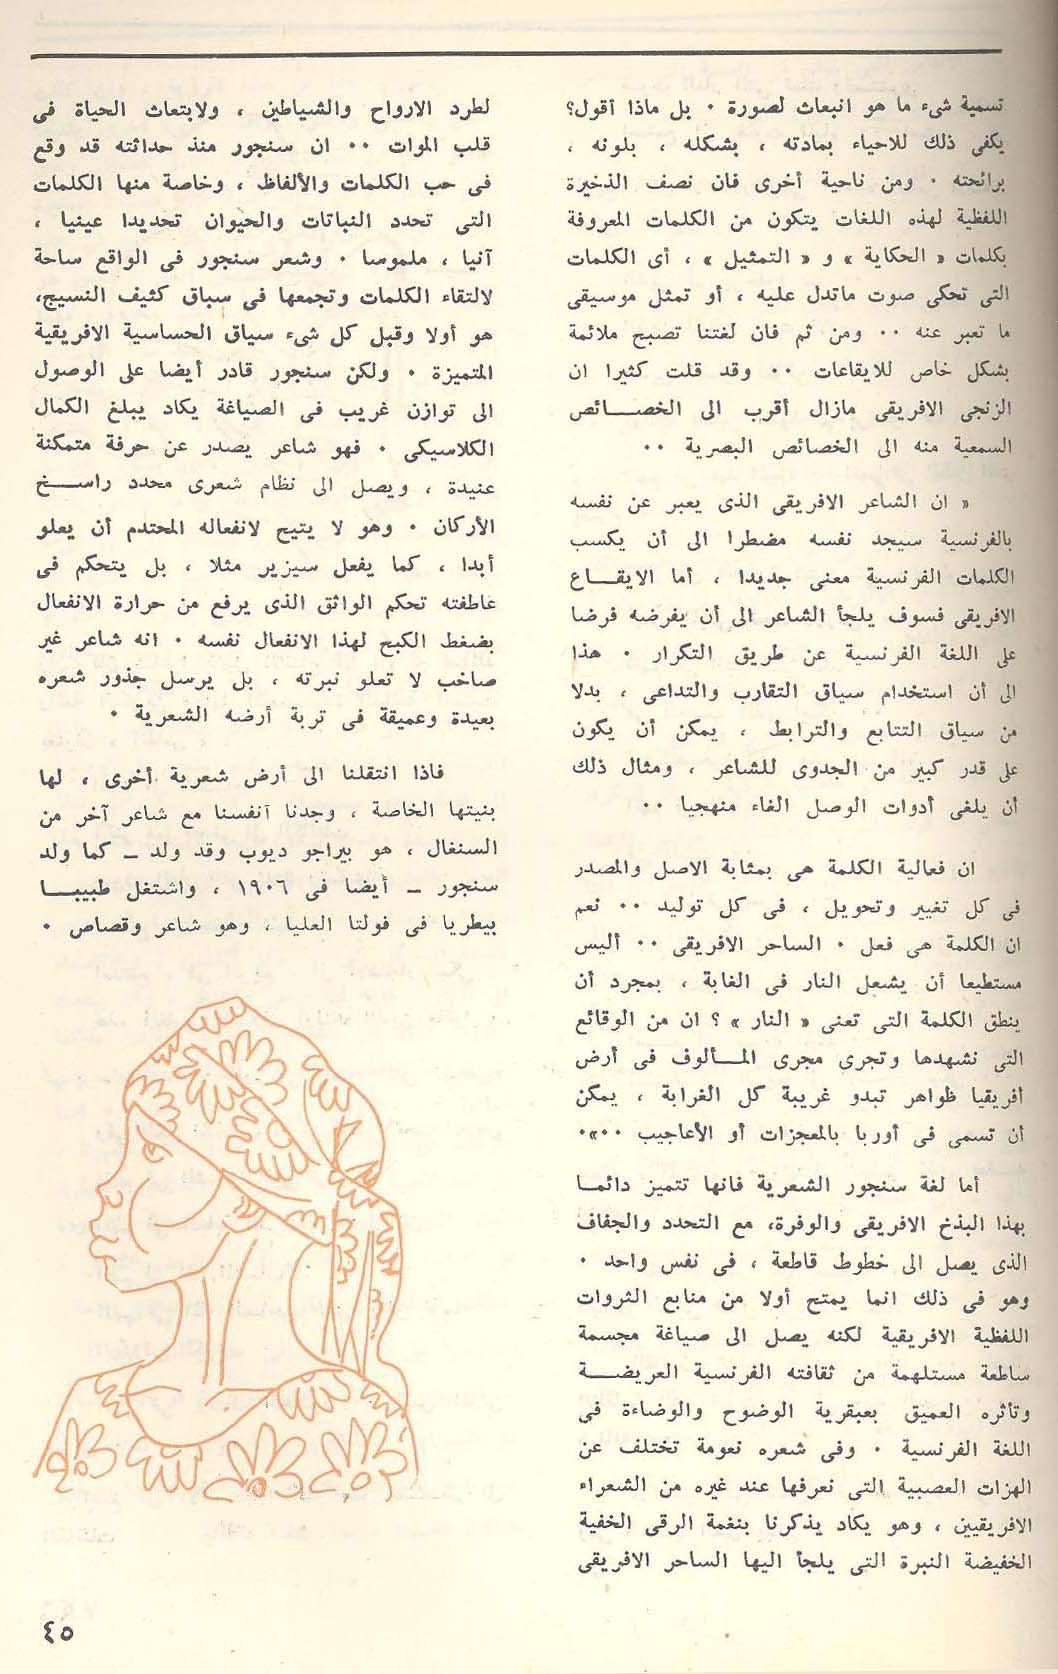 تسمية شىء ما هو انبعاث لصورة . بل ماذا أقول؟
يكفى ذلك للاحياء بمادته ، بشكله ، بلونه ،
برائحته . ومن ناحية أخرى فان نصف الذخيرة
اللفظية لهذه اللغات يتكون من الكلمات المعروفة
بكلمات « الحكاية » و « التمثيل » ، أى الكلمات
التى تحكى صوت ماتدل عليه ، أو تمثل موسيقى
ما تعبر عنه .. ومن ثم فان لغتنا تصبح ملائمة
بشكل خاص للايقاعات .. وقد قلت كثيرا ان
الزنجى الافريقى مازال أقرب الى الخصـــائص
السمعية منه الى الخصائص البصرية ..
« ان الشاعر الافريقى الذى يعبر عن نفسه
بالفرنسية سيجد نفسه مضطرا الى أن يكسب
الكلمات الفرنسية معنى جديدا ، أما الايقـــاع
الافريقى فسوف يلجأ الشاعر الى أن يفرضه فرضا
على اللغة الفرنسية عن طريق التكرار . هذا
الى أن استخدام سياق التقارب والتداعى ، بدلا
من سياق التتابع والترابط ، يمكن أن يكون
على قدر كبير من الجدوى للشاعر ، ومثال ذلك
أن يلغى أدوات الوصل الغاء منهجيا ..
ان فعالية الكلمة هى بمثابة الاصل والمصدر
فى كل تغيير وتحويل ، فى كل توليد .. نعم
ان الكلمة هى فعل . الساحر الافريقى .. أليس
مستطيعا أن يشعل النار فى الغابة ، بمجرد أن
ينطق الكلمة التى تعنى « النار » ؟ ان من الوقائع
التى نشهدها وتجرى مجرى المـــألوف فى أرض
أفريقيا ظواهر تبدو غريبة كل الغرابة ، يمكن
أن تسمى فى أوربا بالمعجزات أو الأعاجيب ..».
أما لغة سنجور الشعرية فانها تتميز دائمـا
بهذا البذخ الافريقى والوفرة، مع التحدد والجفاف
الذى يصل الى خطوط قاطعة ، فى نفس واحد .
وهو فى ذلك انما يمتح أولا من منابع الثروات
اللفظية الافريقية لكنه يصل الى صياغة مجسمة
ساطعة مستلهمة من ثقافته الفرنسية العريضـــة
وتأثره العميق بعبقرية الوضوح والوضاءة فى
اللغة الفرنسية . وفى شعره نعومة تختلف عن
الهزات العصبية التى نعرفها عند غيره من الشعراء
الافريقيين ، وهو يكاد يذكرنا بنغمة الرقى الخفية
الخفيضة النبرة التى يلجأ اليها الساحر الافريقى
لطرد الارواح والشياطين ، ولابتعاث الحياة فى
قلب الموات .. ان سنجور منذ حداثته قد وقع
فى حب الكلمات والألفاظ ، وخاصة منها الكلمات
التى تحدد النباتات والحيوان تحديدا عينيا ،
آنيا ، ملموسا . وشعر سنجور فى الواقع ساحة
لالتقاء الكلمات وتجمعها فى سباق كثيف النسيج،
هو أولا وقبل كل شىء سياق الحساسية الافريقية
المتميزة . ولكن سنجور قادر أيضا على الوصول
الى توازن غريب فى الصياغة يكاد يبلغ الكمال
الكلاسيكى . فهو شاعر يصدر عن حرفة متمكنة
عنيدة ، ويصل الى نظام شعرى محدد راســـخ
الأركان . وهو لا يتيح لانفعاله المحتدم أن يعلو
أبدا ، كما يفعل سيزير مثلا ، بل يتحكم فى
عاطفته تحكم الواثق الذى يرفع من حرارة الانفعال
بضغط الكبح لهذا الانفعال نفسه . انه شاعر غير
صاخب لا تعلو نبرته ، بل يرسل جذور شعره
بعيدة وعميقة فى تربة أرضه الشعرية .
فاذا انتقلنا الى أرض شعرية أخرى ، لها
بنيتها الخاصة ، وجدنا أنفسنا مع شاعر آخر من
السنغال ، هو بيراجو ديوب وقد ولد ـ كما ولد
سنجور ـ أيضا فى ١٩٠٦ ، واشتغل طبيبـــا
بيطريا فى فولتا العليا ، وهو شاعر وقصاص .
٤٥